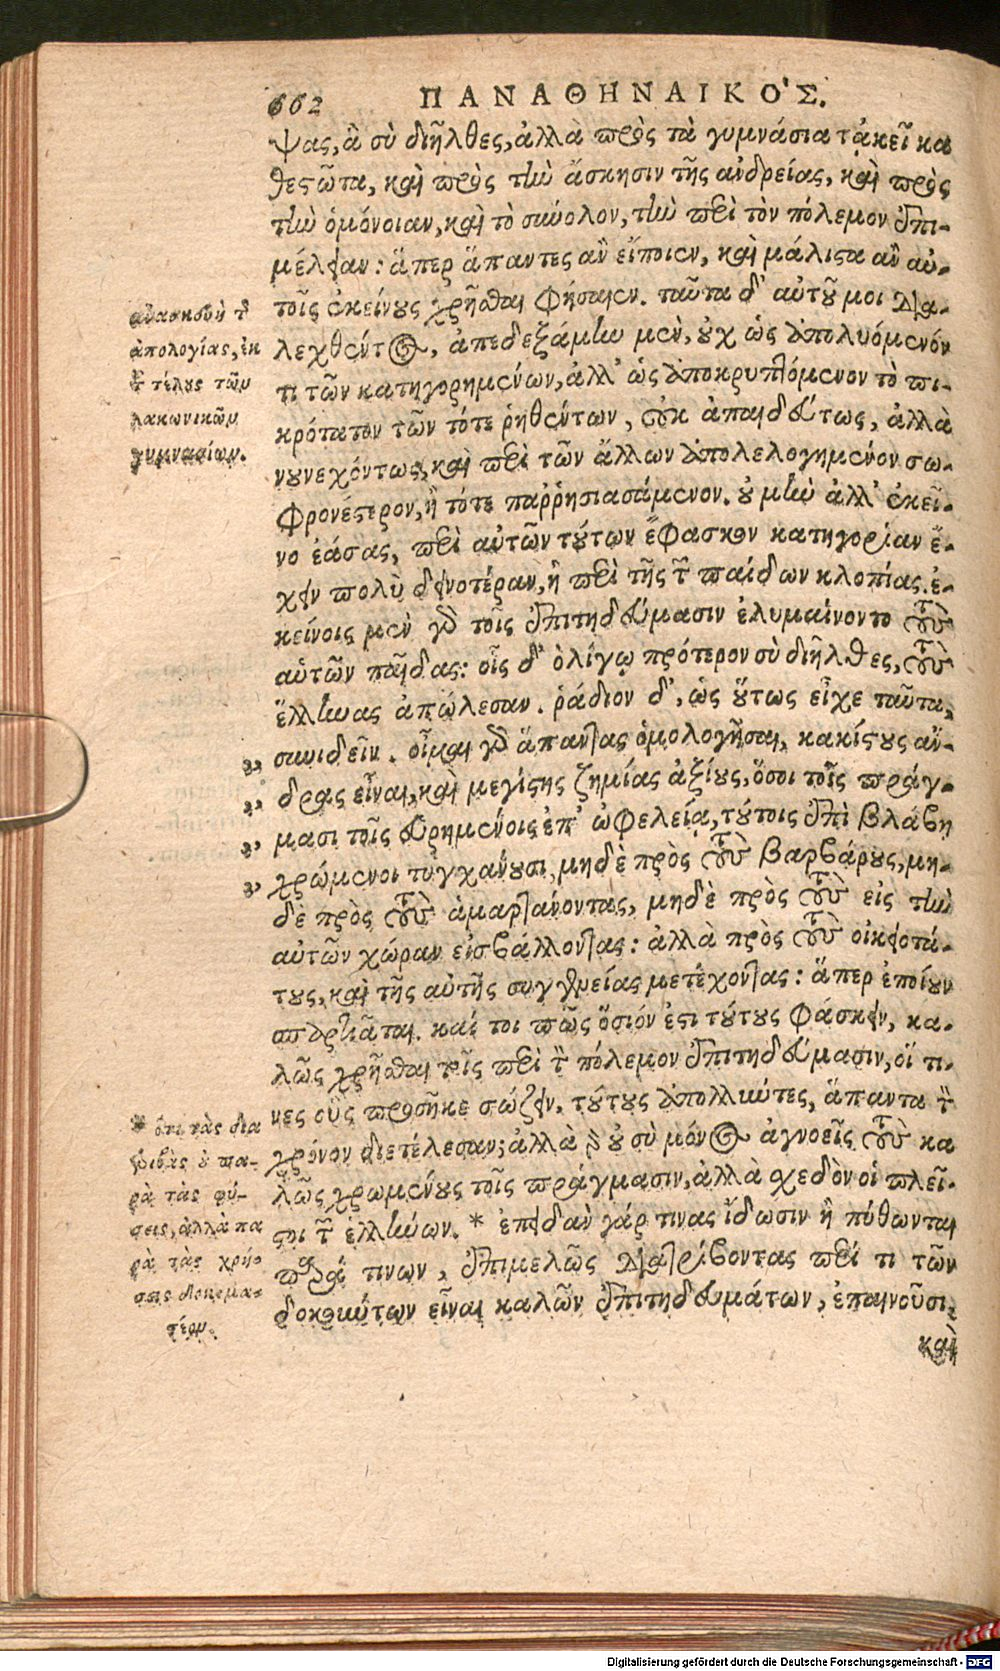 662 ΠΑΝΑΘΗΝΑΙΚΟ'Σ.
ψας, ἃ σὺ διῆλθες, ἀλλὰ πρὸς τὰ γυμνάσια τἀκεῖ κα
θεστῶτα, καὶ πρὸς τὴν ἄσκησιν τῆς ἀνδρείας, καὶ πρὸς
τὴν ὁμόνοιαν, καὶ τὸ σύνολον, τὴν περὶ τὸν πόλεμον ἐπι-
μέλειαν: ἅπερ ἅπαντες ἂν εἴποιεν, καὶ μάλιστα ἂν αὐ-
τοῖς ἐκείνους χρῆσθαι φήσαιεν. ταῦτα δ' αὐτοῦ μοι δια-
λεχθέντος, ἀπεδεξάμην μὲν, οὐχ ὡς ἀπολυόμενόν
τι τῶν κατηγορημένων, ἀλλ' ὡς ἀποκρυπτόμενον τὸ πι-
κρότατον τῶν τότε ῥηθέντων, οὐκ ἀπαιδεύτως, ἀλλὰ
νουνεχόντως, καὶ περὶ τῶν ἄλλων ἀπολελογημένον σω-
φρονέστερον, ἢ τότε παῤῥησιασάμενον. οὐ μὴν ἀλλ' ἐκεῖ-
νο ἐάσας, περὶ αὐτῶν τούτων ἔφασκον κατηγορίαν ἔ-
χειν πολὺ δεινοτέραν, ἢ περὶ τῆς τῶν παίδων κλοπίας. ἐ-
κείνοις μὲν γὰρ τοῖς ἐπιτηδεύμασιν ἐλυμαίνοντο τοὺς
αὑτῶν παῖδας: οἷς δ' ὀλίγῳ πρότερον σὺ διῆλθες, τοὺς
ἕλληνας ἀπώλεσαν. ῥάδιον δ', ὡς οὕτως εἶχε ταῦτα,
συνιδεῖν. οἶμαι γὰρ ἅπαντας ὁμολογῆσαι, κακίστους ἄν-
δρας εἶναι, καὶ μεγίστης ζημίας ἀξίους, ὅσοι τοῖς πράγ-
μασι τοῖς εὑρημένοις ἐπ' ὠφελείᾳ, τούτοις ἐπὶ βλάβῃ
χρώμενοι τυγχάνουσι, μηδὲ πρὸς τοὺς βαρβάρους, μη-
δὲ πρὸς τοὺς ἁμαρτάνοντας, μηδὲ πρὸς τοὺς εἰς τὴν
αὑτῶν χώραν εἰσβάλλοντας: ἀλλὰ πρὸς τοὺς οἰκειοτά-
τους, καὶ τῆς αὐτῆς συγγενείας μετέχοντας: ἅπερ ἐποίουν
σπαρτιᾶται. καί τοι πῶς ὅσιόν ἐστι τούτους φάσκειν, κα-
λῶς χρῆσθαι τοῖς περὶ τὸν πόλεμον ἐπιτηδεύμασιν, οἵ τι-
νες οὓς προσῆκε σώζειν, τούτους ἀπολλύντες, ἅπαντα τὸν
χρόνον διετέλεσαν; ἀλλὰ γὰρ οὐ σὺ μόνος ἀγνοεῖς τοὺς κα
λῶς χρωμένους τοῖς πράγμασιν, ἀλλὰ σχεδὸν οἱ πλεῖ-
στοι τῶν ἑλλήνων. * ἐπειδὰν γάρ τινας ἴδωσιν ἢ πύθωνται
παρά τινων, ἐπιμελῶς διατρίβοντας περί τι τῶν
δοκούντων εἶναι καλῶν ἐπιτηδευμάτων, ἐπαινοῦσι,
καὶ
ἀνασκευὴ τῆς
ἀπολογίας, ἐκ
τοῦ τέλους τῶν
λακωνικῶν
γυμνασίων.
* ὅτι τὰς δια
τριβὰς οὐ πα-
ρὰ τὰς φύ-
σεις, ἀλλὰ πα
ρὰ τὰς χρή-
σεις δοκιμα-
στέον.
Digitalisierung gefördert durch die Deutsche Forschungsgemeinschaft - DFG